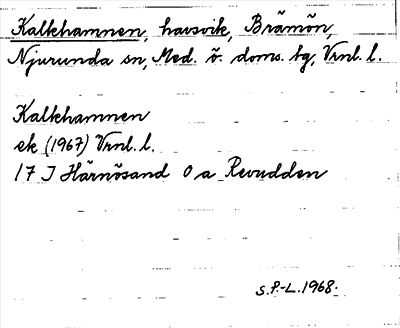 Kalkhamnen, havsvik, Brämön,
Njurunda sn, Med. ö. doms. tg, Vrnl. l.
Kalkhamnen
ek (1967) Vrnl. l.
17 I Härnösand 0 a Revudden
S.P.-L. 1968.